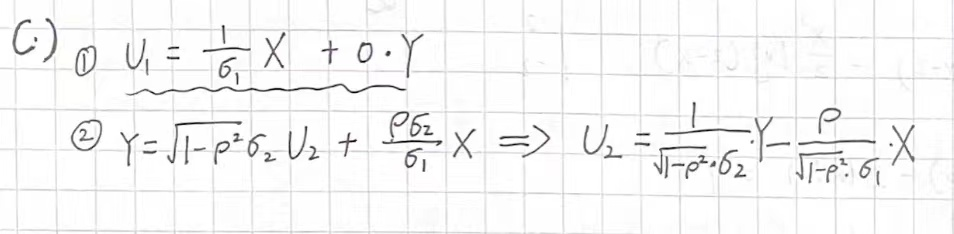 C.) ① U₁ = \frac{1}{σ₁} X + 0·Y
② Y = \sqrt{1-ρ²} σ₂ U₂ + \frac{ρσ₂}{σ₁} X ⇒ U₂ = \frac{1}{\sqrt{1-ρ²}·σ₂}·Y - \frac{ρ}{\sqrt{1-ρ²}·σ₁}·X